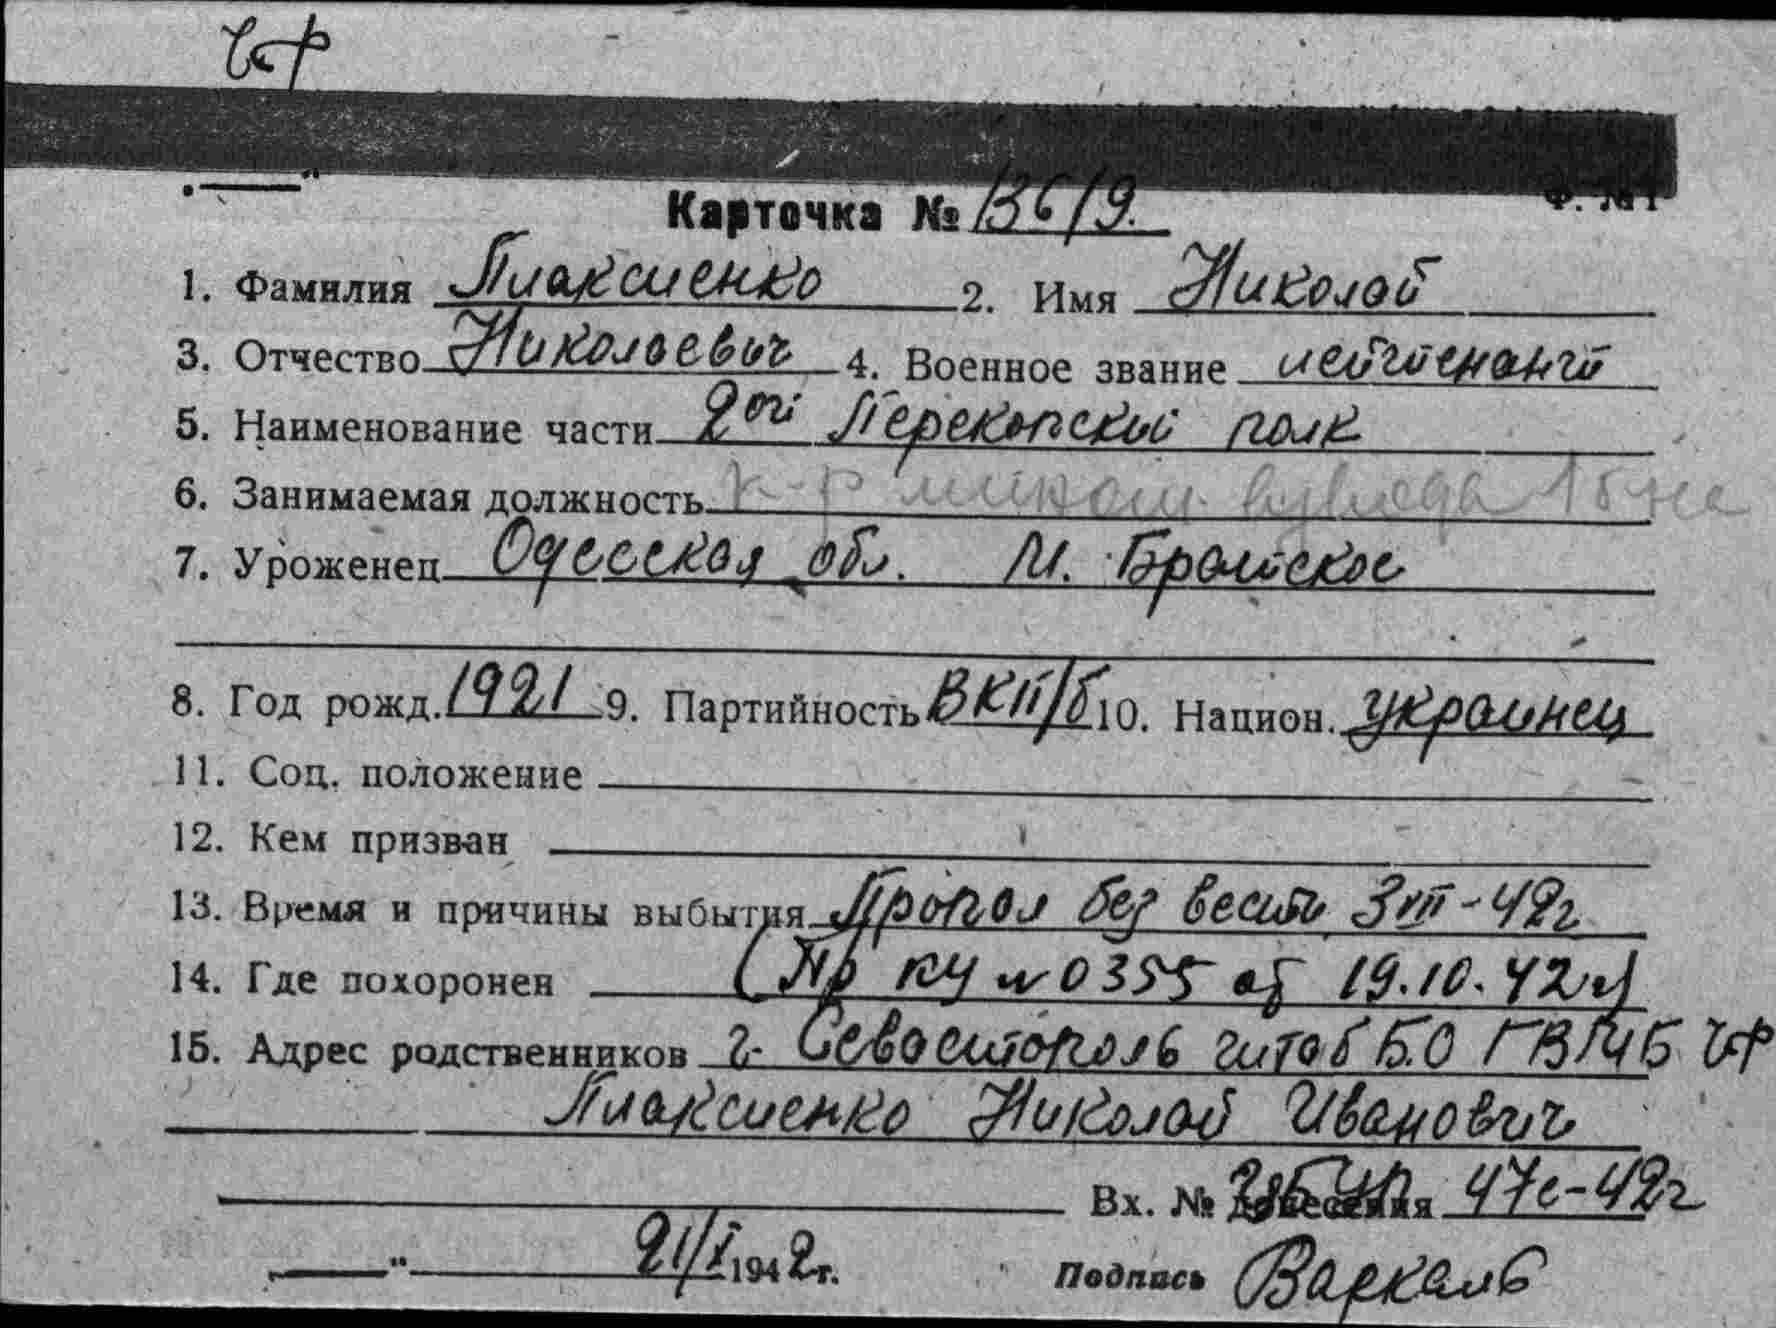 ЧФ
Ф. №1
Карточка № 13619.
1. Фамилия Плаксиенко 2. Имя Николай
3. Отчество Николаевич 4. Военное звание лейтенант
5. Наименование части 2ой Перекопский полк
6. Занимаемая должность к-р мином. взвода 1б-на
7. Уроженец Одесская обл. м. Братское
8. Год рожд. 1921 9. Партийность ВКП/б 10. Национ. украинец
11. Соц. положение
12. Кем призван
13. Время и причины выбытия Пропал без вести 3 VII-42г
14. Где похоронен (Пр КУ № 0355 от 19.10.42г)
15. Адрес родственников г. Севастополь штаб Б.О ГВМБ ЧФ
Плаксиенко Николай Иванович
Вх. № 47с-42г
21/X 1942г. Подпись